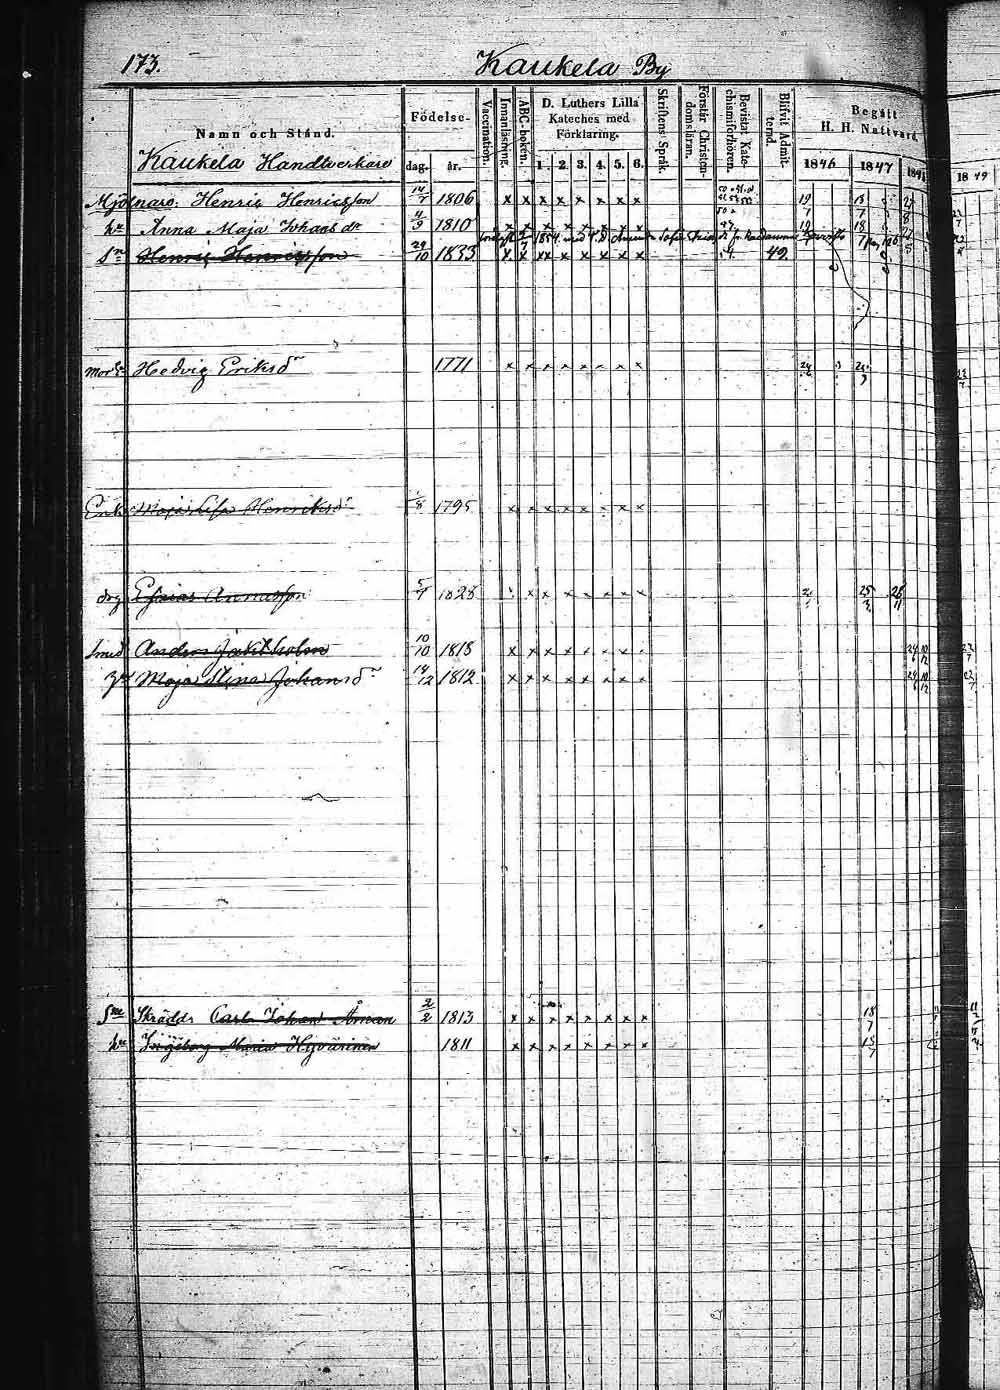 173. Kaukela By
Namn och Stånd.
Födelse-
dag. år.
Vaccination.
Innanläsning.
ABC-boken.
D. Luthers Lilla
Kateches med
Förklaring.
1. 2. 3. 4. 5. 6.
Skriftens Språk.
Förstår Christen-
domsläran.
Bevistat Kate-
chismiförhören.
Blifvit Admit-
terad.
Begått
H. H. Nattvard.
1846 1847 1848 1849
Kaukela Handtverkare
Mjölnare. Henric Henricsson 14/7 1806 x x x x x x x x
hu Anna Maja Johans dr 4/9 1810 x x x x x x x x
1854 med
Sn Henric Henricsson 29/10 1833 x x x x x x x x 49.
Hedvig Eriksdr 1771 x x x x x x x x
Enk Maja Lisa Henriksdr 1/8 1795 x x x x x x x x
drg Esaias 5/7 1828 x x x x x x x
Smed Anders 10/10 1813 x x x x x x x x
Maja Stina Johansdr 14/12 1812 x x x x x x x x
Skrädd. Carl Johan Åman 2/2 1813 x x x x x x x x 18/7
hu Ingeborg Maria Hyvärinen 1811 x x x x x x x x 18/7